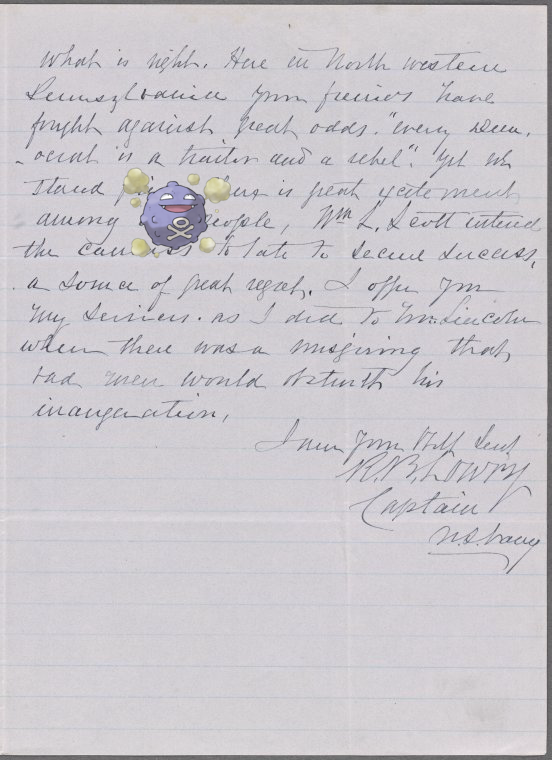 what is right. Here in North western
Pennsylvania your friends have
fought against great odds. "every Dem-
-ocrat is a traitor and a rebel". Yet we
stand is great excitement
among people, Wm L. Scott entered
the canvass to late to secure success,
a source of great regret. I offer you
my services. as I did to Mr. Lincoln
when there was a misgiving that
bad men would obstruct his
inauguration,
I am your Obt Servt
R. B. Lowry
Captain
U.S. Navy